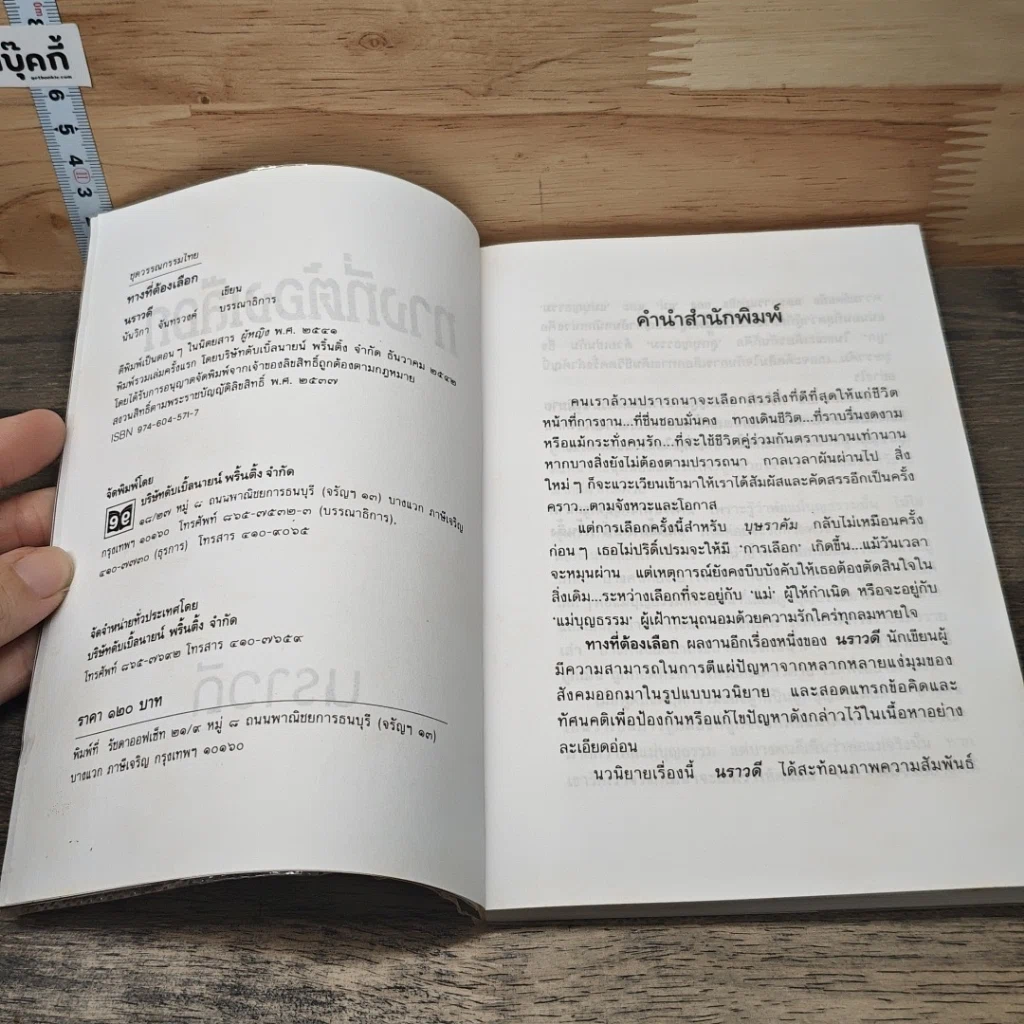 บุ๊คกี้
ชุดวรรณกรรมไทย
ทางที่ต้องเลือก
นราวดี เขียน
นันวิภา จันทรวงค์ บรรณาธิการ
ตีพิมพ์เป็นตอนๆ ในนิตยสาร ผู้หญิง พ.ศ. ๒๕๔๑
พิมพ์รวมเล่มครั้งแรก โดยบริษัทดับเบิ้ลนายน์ พริ้นติ้ง จำกัด ธันวาคม ๒๕๔๒
โดยได้รับการอนุญาตจัดพิมพ์จากเจ้าของลิขสิทธิ์ถูกต้องตามกฎหมาย
สงวนสิทธิ์ตามพระราชบัญญัติลิขสิทธิ์ พ.ศ. ๒๕๓๗
ISBN 974-604-571-7
จัดพิมพ์โดย
บริษัทดับเบิ้ลนายน์ พริ้นติ้ง จำกัด
๑๘/๒๗ หมู่ ๘ ถนนพาณิชยการธนบุรี (จรัญฯ ๑๓) บางแวก ภาษีเจริญ
กรุงเทพฯ ๑๐๑๖๐ โทรศัพท์ ๘๖๕-๗๕๓๒-๓ (บรรณาธิการ).
๔๑๐-๗๗๓๐ (ธุรการ) โทรสาร ๔๑๐-๙๐๖๕
จัดจำหน่ายทั่วประเทศโดย
บริษัทดับเบิ้ลนายน์ พริ้นติ้ง จำกัด
โทรศัพท์ ๘๖๕-๗๖๙๒ โทรสาร ๔๑๐-๗๖๕๙
ราคา ๑๒๐ บาท
พิมพ์ที่ รัชดาออฟเซ็ท ๒๑/๙ หมู่ ๘ ถนนพาณิชยการธนบุรี (จรัญฯ ๑๓)
บางแวก ภาษีเจริญ กรุงเทพฯ ๑๐๑๖๐
คำนำสำนักพิมพ์
คนเราล้วนปรารถนาจะเลือกสรรสิ่งที่ดีที่สุดให้แก่ชีวิต
หน้าที่การงาน...ที่ชื่นชอบมั่นคง ทางเดินชีวิต...ที่ราบรื่นงดงาม
หรือแม้กระทั่งคนรัก...ที่จะใช้ชีวิตคู่ร่วมกันตราบนานเท่านาน
หากบางสิ่งยังไม่ต้องตามปรารถนา กาลเวลาผันผ่านไป สิ่ง
ใหม่ๆ ก็จะแวะเวียนเข้ามาให้เราได้สัมผัสและคัดสรรอีกเป็นครั้ง
คราว...ตามจังหวะและโอกาส
แต่การเลือกครั้งนี้สำหรับ บุษราคัม กลับไม่เหมือนครั้ง
ก่อนๆ เธอไม่ปริดิ์เปรมจะให้มี 'การเลือก' เกิดขึ้น...แม้วันเวลา
จะหมุนผ่าน แต่เหตุการณ์ยังคงบีบบังคับให้เธอต้องตัดสินใจใน
สิ่งเดิม...ระหว่างเลือกที่จะอยู่กับ 'แม่' ผู้ให้กำเนิด หรือจะอยู่กับ
'แม่บุญธรรม' ผู้เฝ้าทะนุถนอมด้วยความรักใคร่ทุกลมหายใจ
ทางที่ต้องเลือก ผลงานอีกเรื่องหนึ่งของ นราวดี นักเขียนผู้
มีความสามารถในการตีแผ่ปัญหาจากหลากหลายแง่มุมของ
สังคมออกมาในรูปแบบนวนิยาย และสอดแทรกข้อคิดและ
ทัศนคติเพื่อป้องกันหรือแก้ไขปัญหาดังกล่าวไว้ในเนื้อหาอย่าง
ละเอียดอ่อน
นวนิยายเรื่องนี้ นราวดี ได้สะท้อนภาพความสัมพันธ์